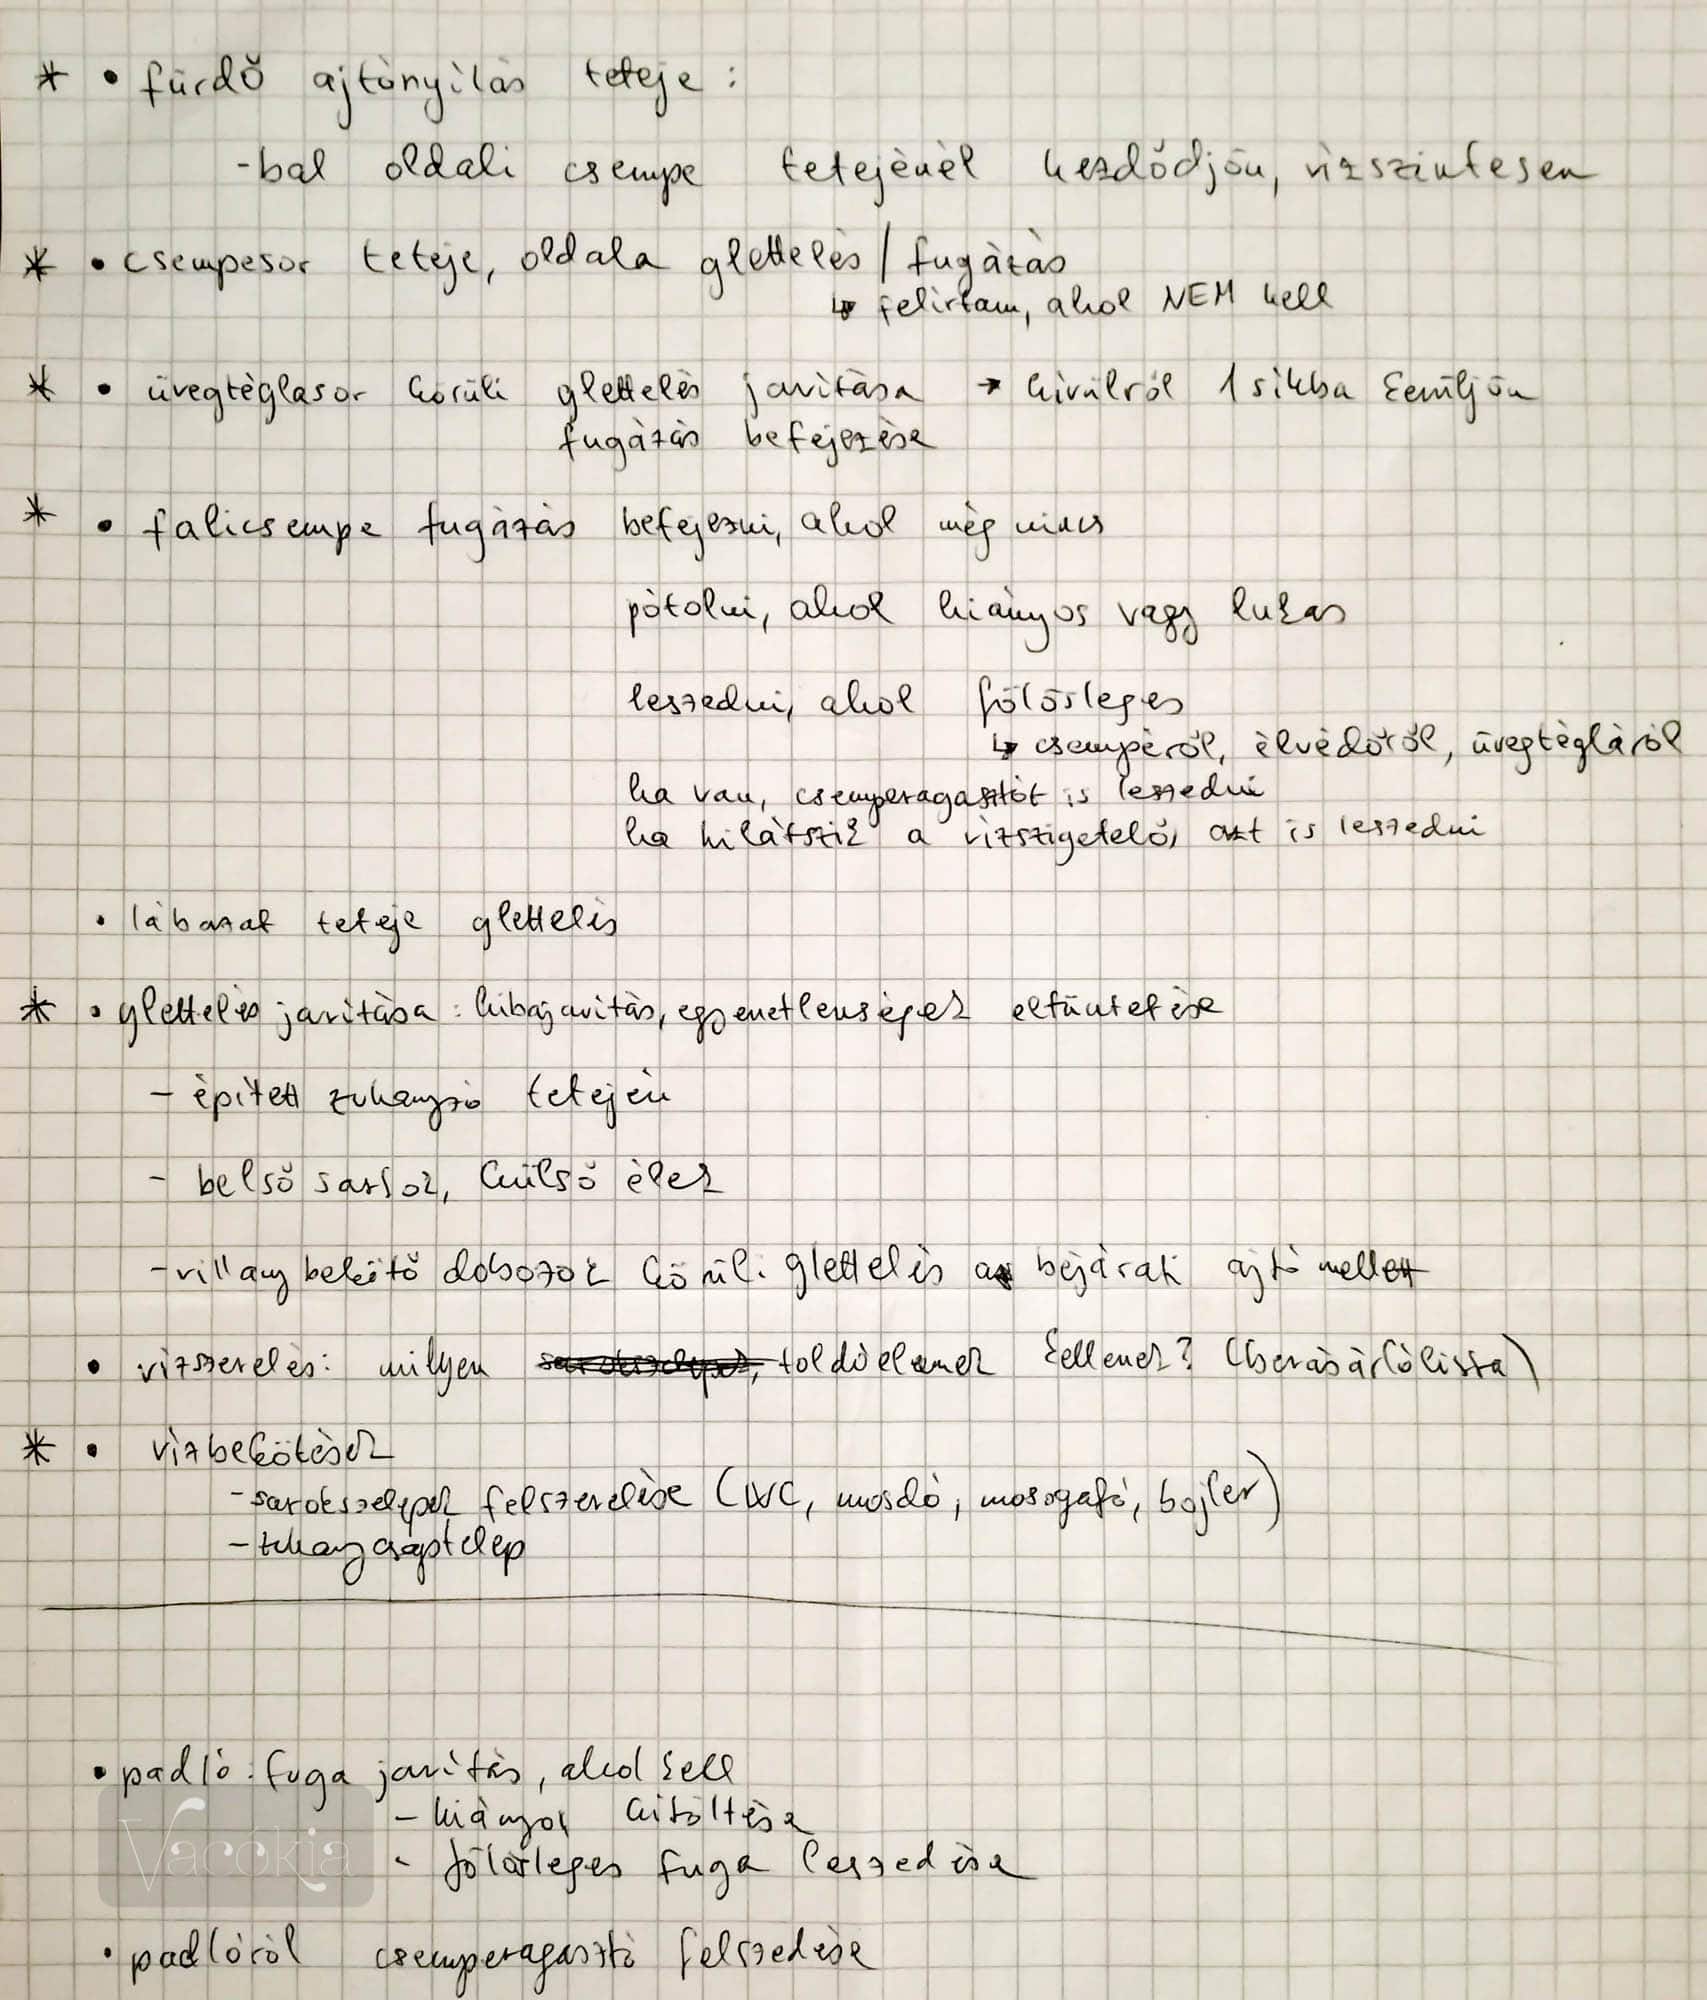 * • fürdő ajtónyílás teteje:
-bal oldali csempe tetejénél kezdődjön, vízszintesen
* • csempesor teteje, oldala glettelés / fugázás
↳ felírtam, ahol NEM kell
* • üvegtéglasor körüli glettelés javítása → kívülről 1 síkba kerüljön
fugázás befejezése
* • falicsempe fugázás befejezni, ahol még nincs
pótolni, ahol hiányos vagy lukas
leszedni, ahol fölösleges
↳ csempéről, élvédőről, üvegtégláról
ha van, csemperagasztót is leszedni
ha kilátszik a vízszigetelő, azt is leszedni
• lábazat teteje glettelés
* • glettelés javítása: hibajavítás, egyenetlenségek eltüntetése
- épített zuhanyzó tetején
- belső sarkok, külső élek
- villanybekötő dobozok körüli glettelés a bejárati ajtó mellett
• vízszerelés: milyen sarokszelepek, toldóelemek kellenek? (bevásárlólista)
* • vízbekötések
- sarokszelepek felszerelése (WC, mosdó, mosogató, bojler)
- zuhanycsaptelep
• padló: fuga javítás, ahol kell
- hiányok kitöltése
- fölösleges fuga leszedése
Vacókia
• padlóról csemperagasztó felszedése